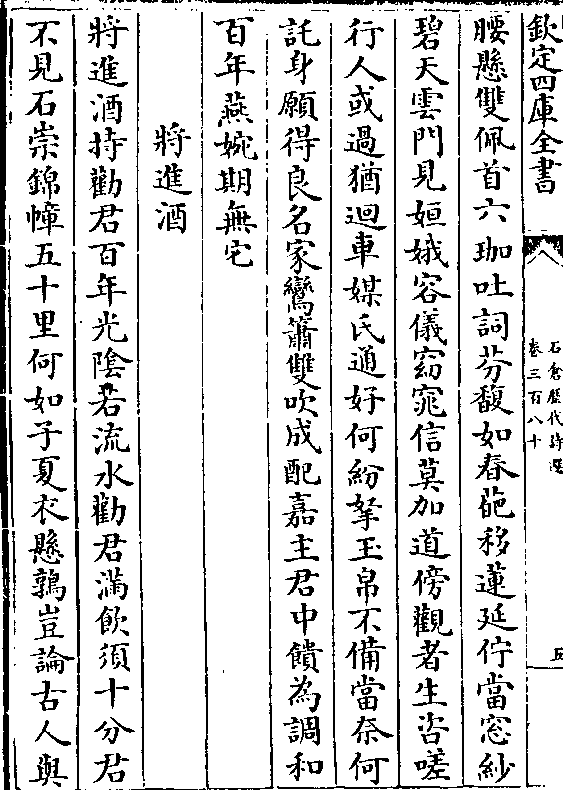 欽定四庫全書
石倉歷代詩選
卷三百八十
五
腰懸雙佩首六珈吐詞芬馥如春葩移蓮延佇當窓紗
碧天雲門見姮娥容儀窈窕信莫加道傍觀者生咨嗟
行人或過猶迴車媒氏通好何紛拏玉帛不備當奈何
託身願得良名家鸞簫雙吹成配嘉主君中饋為調和
百年燕婉期無它
將進酒
將進酒持勸君百年光陰若流水勸君滿飲須十分君
不見石崇錦幛五十里何如子夏衣懸鶉豈論古人與